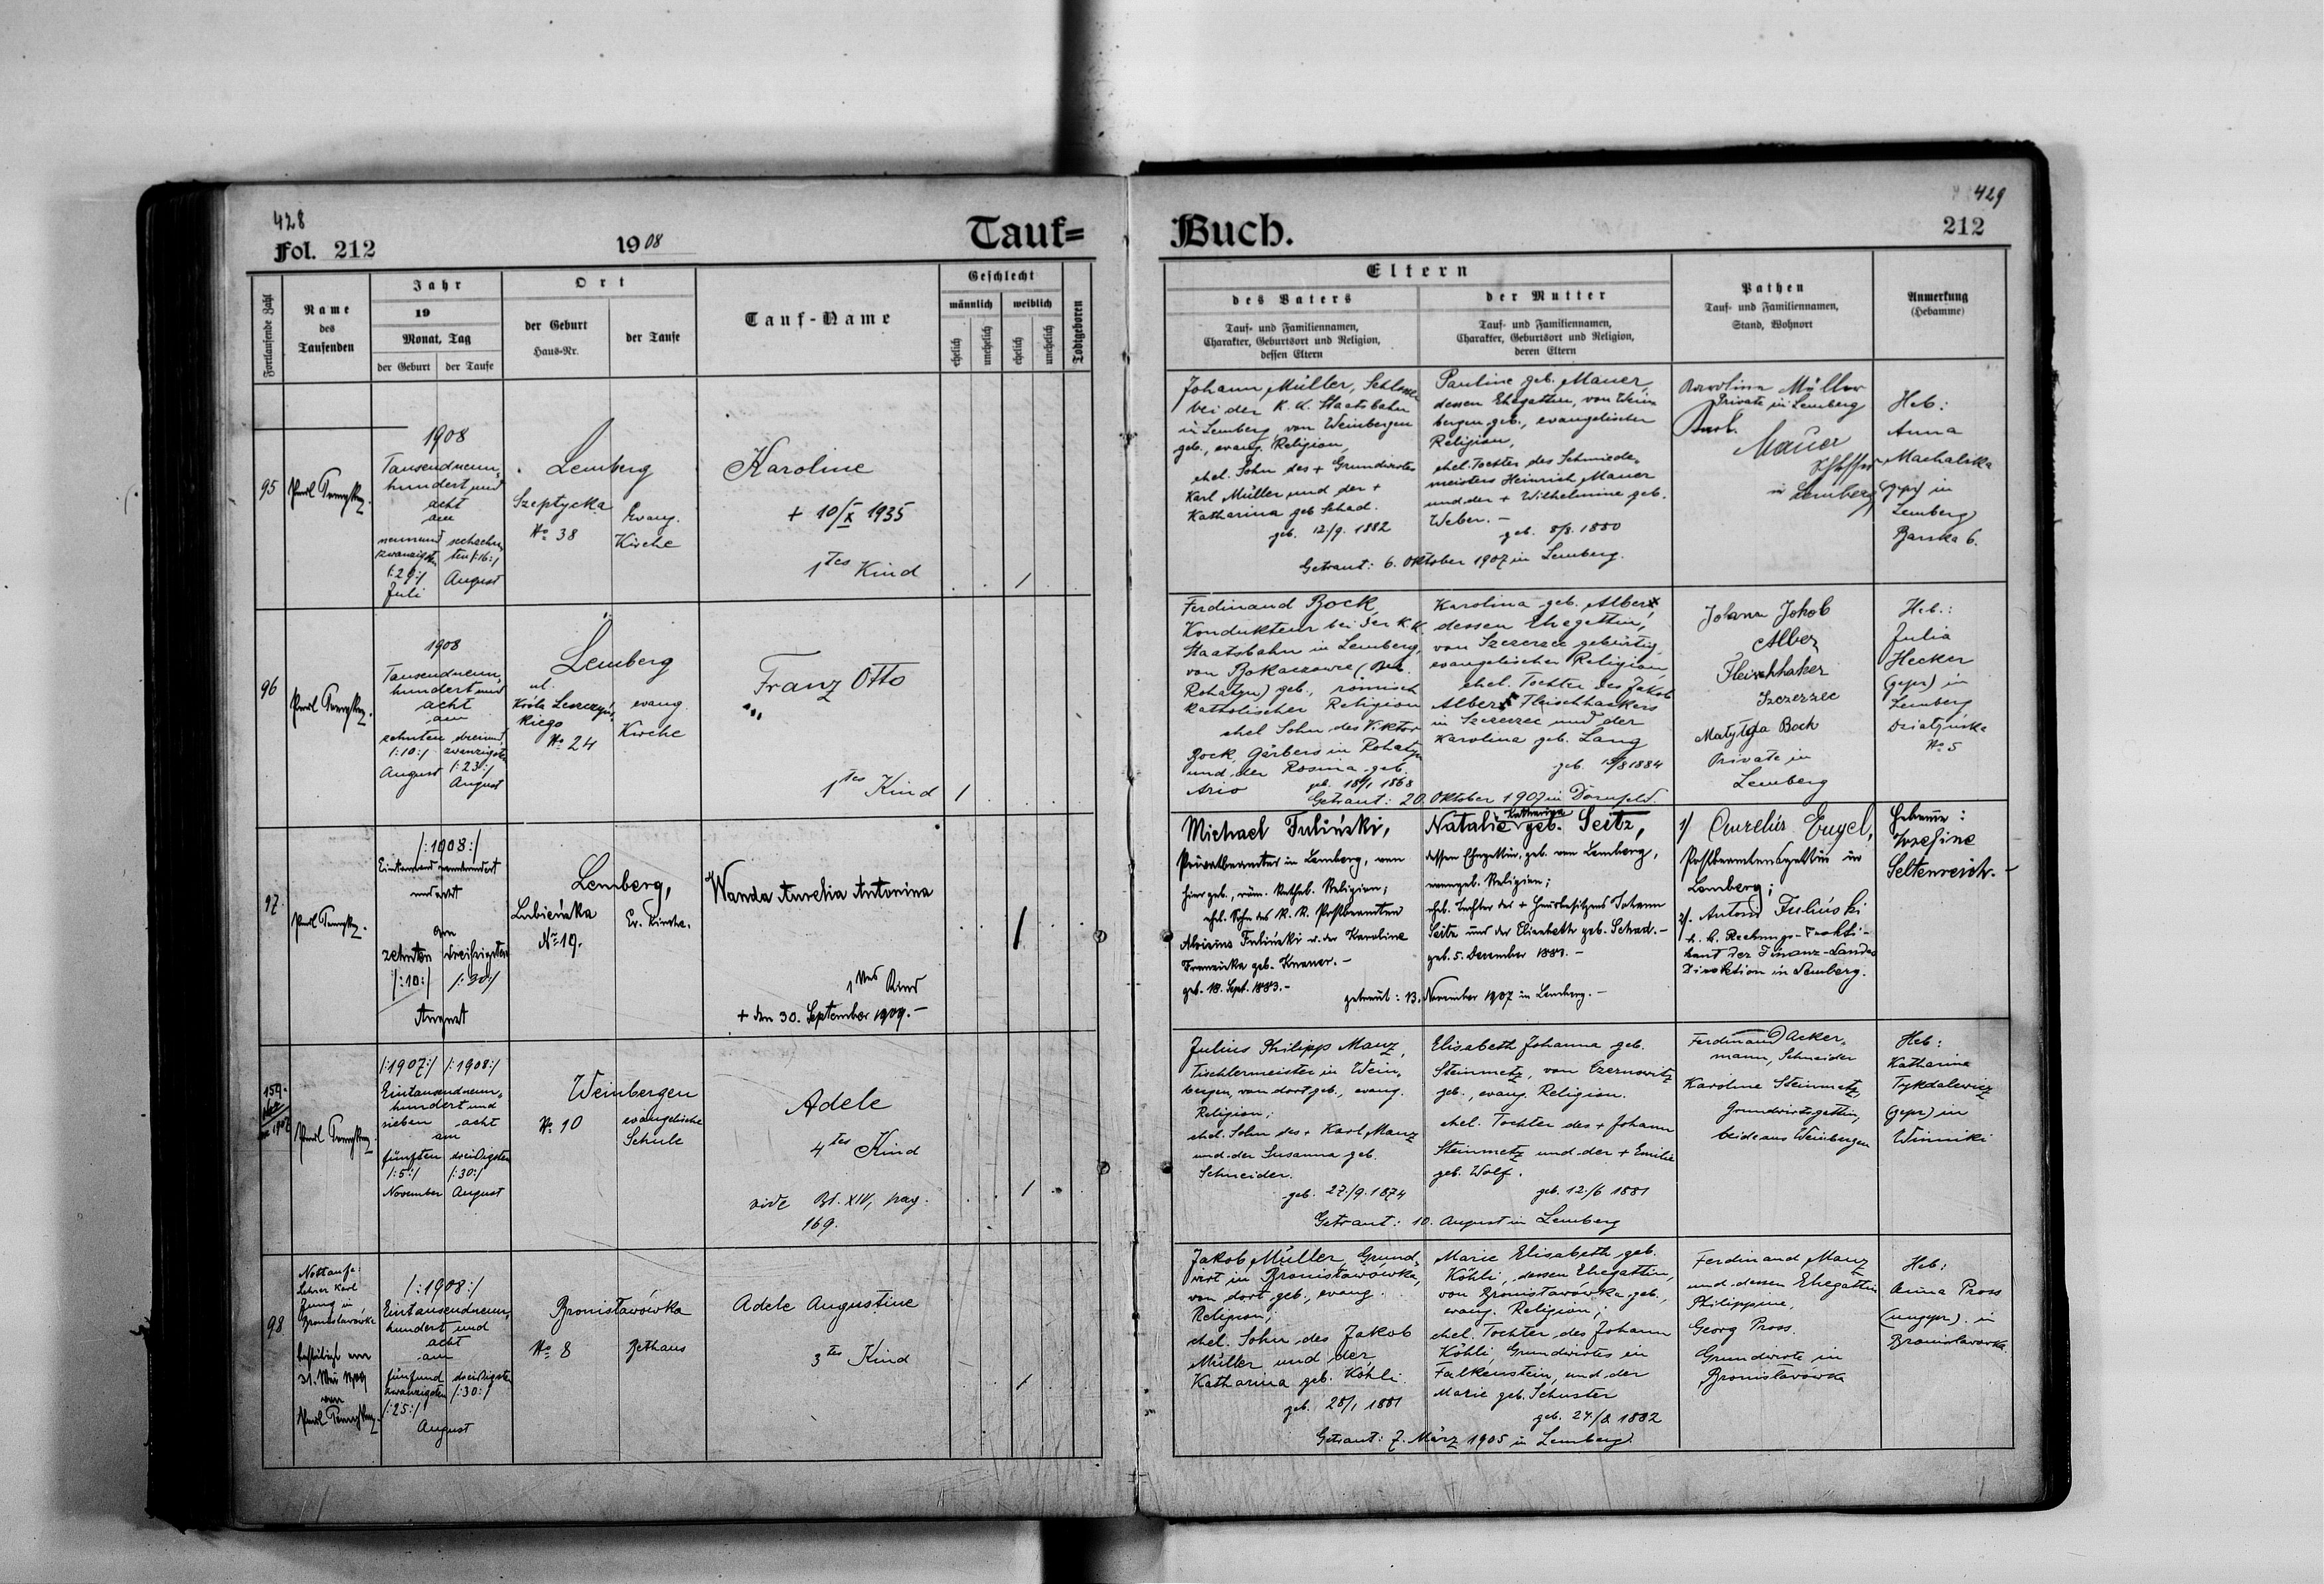 428
Fol. 212
1908
Tauf=
Fortlaufende Zahl
Name
des
Taufenden
Jahr
19
Monat, Tag
der Geburt
der Taufe
Ort
der Geburt
Haus-Nr.
der Taufe
Tauf-Name
Geschlecht
männlich
weiblich
ehelich
unehelich
ehelich
unehelich
Todtgeboren
95
1908
Tausendneun-
hundert und
acht
am
neunund
zwanzigsten
/:29:/
Juli
sechzehn
ten /:16:/
August
Lemberg
Szeptycka
No 38
Evang.
Kirche
Karoline
+ 10/X 1935
1tes Kind
96
1908
Tausendneun-
hundert und
acht
am
zehnten
/:10:/
August
dreiund
zwanzigsten
/:23:/
August
Lemberg
ul.
Króla Leszczyńs
kiego
No 24
evang.
Kirche
Franz Otto
1tes Kind
97
/:1908:/
Eintausend neunhundert
und acht
am
zehnten
/:10:/
dreißigsten
/:30:/
August
Lemberg,
Lubieńska
No 19.
Ev. Kirche.
Wanda Aurelia Antonina
1tes Kind
+ den 30. September 1909.-
159.
/:1907:/ /:1908:/
Eintausendneun-
hundert und
sieben acht
am
fünften dreißigsten
/:5:/ /:30:/
November August
Weinbergen
No 10
evangelische
Schule
Adele
4tes Kind
vide Bd. XIV, pag.
169.
98
Nottaufe:
Lehrer Karl
Jung in
Bronislawówka
/:1908:/
Eintausendneun-
hundert und
acht
am
fünfund dreißigsten
zwanzigsten /:30:/
/:25:/
August
Bronisławówka
No 8
Bethaus
Adele Augustine
3tes Kind
429
Buch.
212
Eltern
des Vaters
Tauf- und Familiennamen,
Charakter, Geburtsort und Religion,
dessen Eltern
der Mutter
Tauf- und Familiennamen,
Charakter, Geburtsort und Religion,
deren Eltern
Pathen
Tauf- und Familiennamen,
Stand, Wohnort
Anmerkung
(Hebamme)
Johann Müller, Schlosser
bei der k. k. Staatsbahn
in Lemberg, von Weinbergen
geb., evang. Religion,
ehel. Sohn des + Grundwirtes
Karl Müller und der +
Katharina geb. Schad.
geb. 12./9. 1882
Pauline geb. Mauer,
dessen Ehegattin, von Wein-
bergen geb., evangelischer
Religion,
ehel. Tochter des Schmiede-
meisters Heinrich Mauer
und der + Wilhelmine geb.
Weber. -
geb. 8/8. 1880
Getraut: 6. Oktober 1907 in Lemberg.
Karolina Müller
Private in Lemberg
Mauer
in Lemberg
Heb:
Anna
Machalska
(gepr) in
Lemberg
Barska 6.
Ferdinand Bock,
Kondukteur bei der k.k.
Staatsbahn in Lemberg,
von Bokaczowce (Bez.
Rohatyn) geb., römisch
katholischer Religion
ehel Sohn des Viktor
Bock, Gärbers in Rohatyn
und der Rosina geb.
Ario
geb. 18/1 1868
Karolina geb. Albert,
dessen Ehegattin,
von Szczerzec gebürtig,
evangelischer Religion
ehel. Tochter des Jakob
Albert Fleischhackers
in Szczerzec und der
Karolina geb. Lang
geb. 15/8 1884
Getraut: 20. Oktober 1907 in Dornfeld.
Johann Jakob
Alber
Fleischhaker
Szczerzec
Matylda Bock
Private in
Lemberg
Heb.:
Julia
Hecker
(gepr) in
Lemberg
No 5
Michael Fuliński,
Privatbeamter in Lemberg, von
hier geb., röm. kathol. Religion;
ehel. Sohn des k. k. Postbeamten
Aloisius Fuliński u. der Karoline
Franziska geb. Knauer. -
geb. 18. Sept. 1883.-
Katharina
Natalie geb. Seitz,
dessen Ehegattin, geb. von Lemberg,
evangel. Religion;
ehel. Tochter des + Hausbesitzers Johann
Seitz und der Elisabeth geb. Schad.-
geb. 5. Dezember 1881. -
getraut: 13. November 1907 in Lemberg. -
1/ Aurelius Engel,
Postbeamtensgattin in
Lemberg;
2/. Antoni Fuliński
k. k. Rechnungs-Prakti-
kant der Finanz-Landes
Direktion in Lemberg.
Hebamme:
Josefine
Seltenreich. -
Julius Philipp Manz,
Tischlermeister in Wein-
bergen, von dort geb., evang.
Religion;
ehel. Sohn des + Karl Manz
und der Susanna geb.
Schneider.
geb. 27./9. 1874
Elisabeth Johanna geb.
Steinmetz, von Czernowitz
geb., evang. Religion.
ehel. Tochter des + Johann
Steinmetz und der + Emilie
geb. Wolf.
geb. 12./6 1881
Getraut: 10. August in Lemberg
Ferdinand Acker-
mann, Schneider
Karoline Steinmetz,
Grundwirtsgattin,
beide aus Weinbergen
Heb:
Katharina
Tykdalewicz
(gepr) in
Winniki
Jakob Müller, Grund-
wirt in Bronisławówka,
von dort geb., evang.
Religion;
ehel. Sohn des Jakob
Müller und der
Katharina geb. Köhli.
geb. 28/1 1881
Marie Elisabeth geb.
Köhli, dessen Ehegattin,
von Bronisławówka geb.,
evang. Religion;
ehel. Tochter des Johann
Köhli, Grundwirtes in
Falkenstein, und der
Marie geb. Schuster
geb. 24./8 1882
Getraut: 7. März 1905 in Lemberg.
Ferdinand Manz
und dessen Ehegattin
Philippine,
Georg Pross.
Grundwirte in
Bronisławówka
Heb:
Anna Pross
(ungepr). in
Bronislawowka.